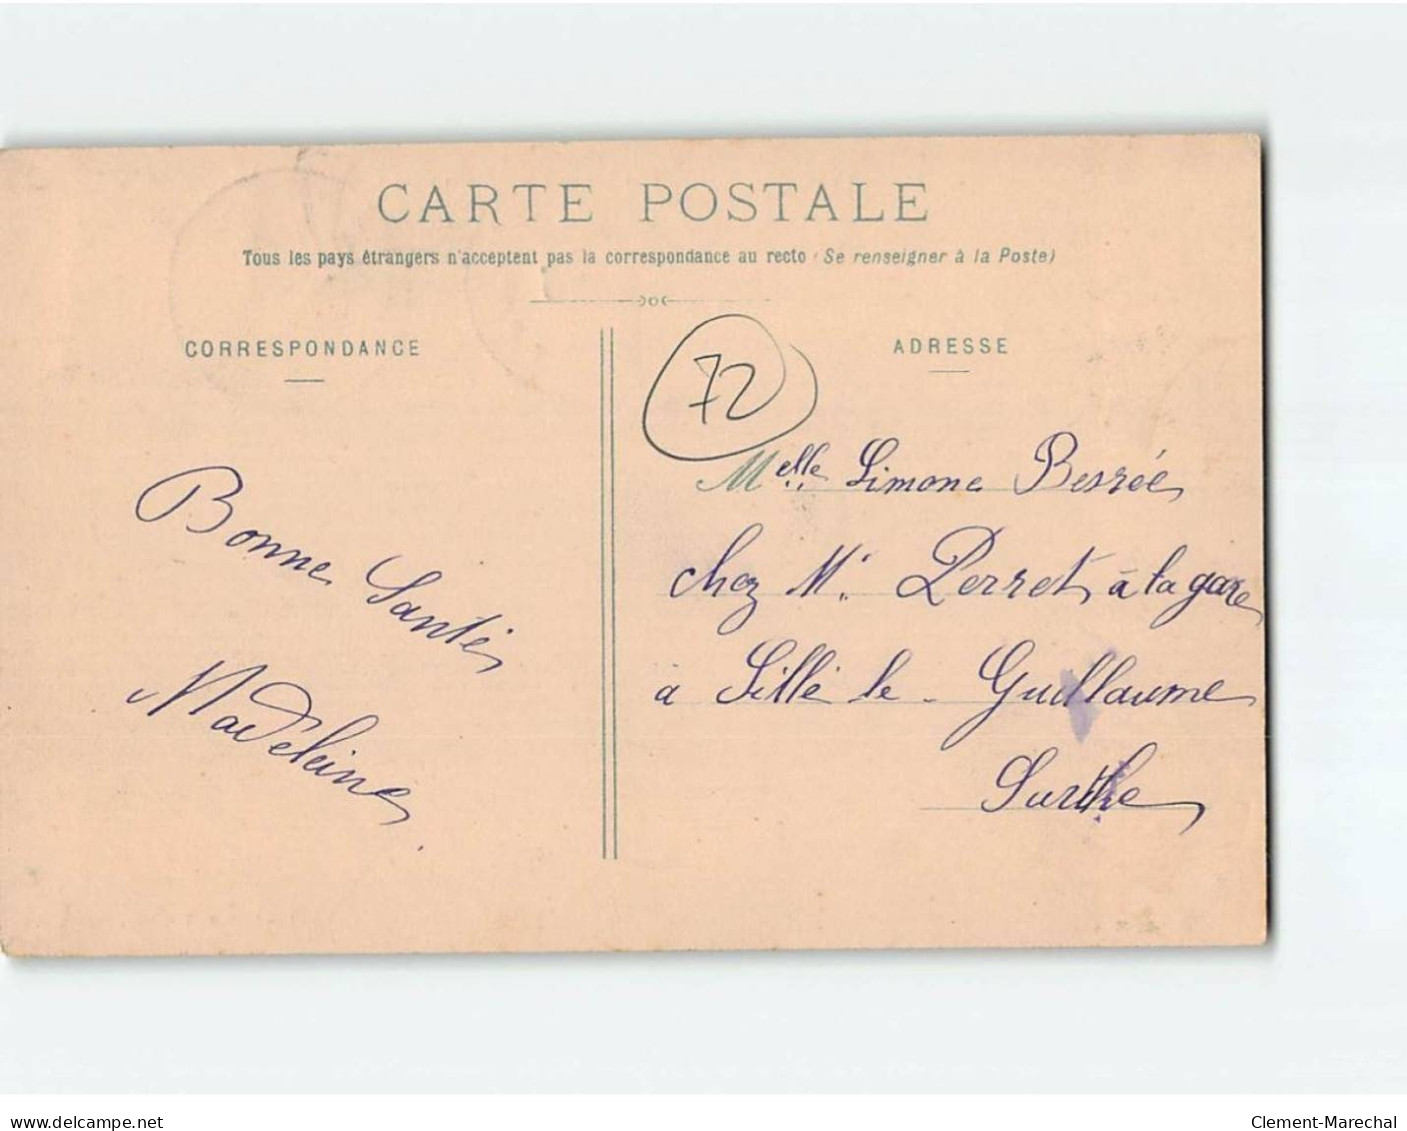 CARTE POSTALE
Tous les pays étrangers n'acceptent pas la correspondance au recto (Se renseigner à la Poste)
CORRESPONDANCE
ADRESSE
72
Bonne Santé
Madeleine
Melle Simone Besrée
chez Mr. Perret à la gare
à Sillé le Guillaume
Sarthe
www.delcampe.net
Clement-Marechal